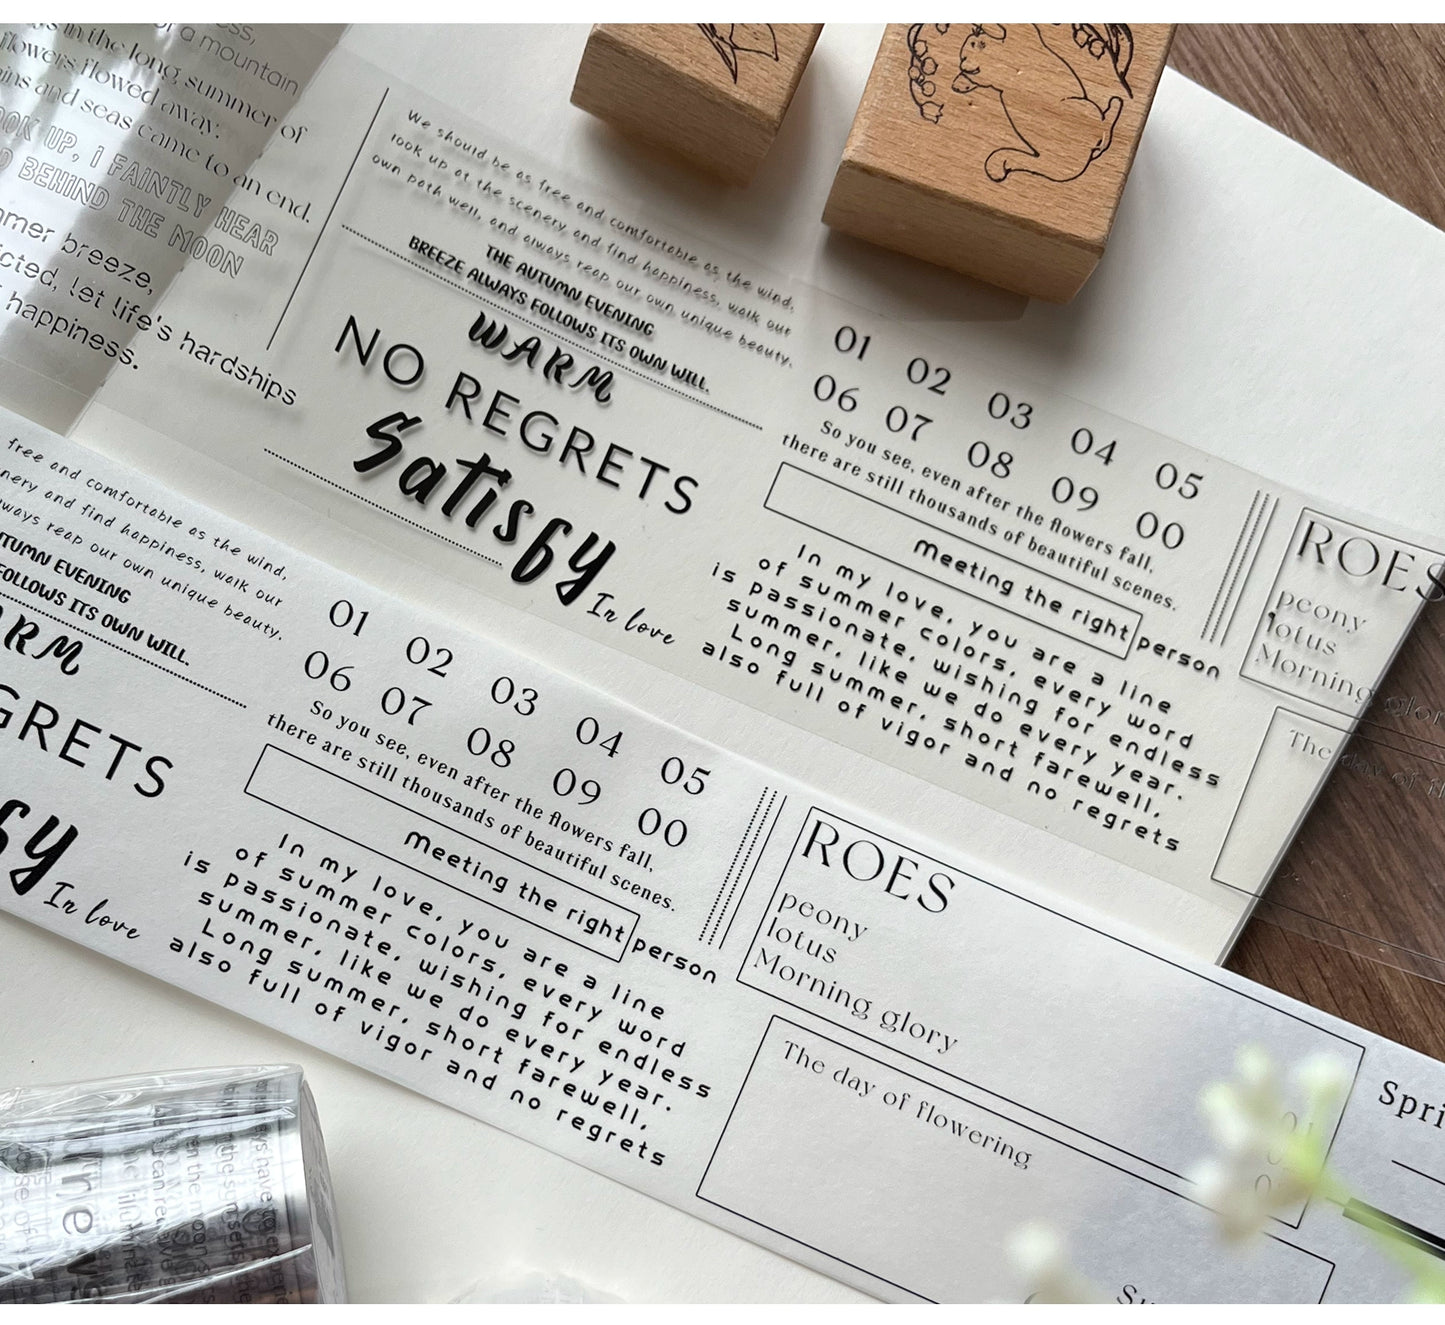 of a mountain
in the long summer of
flowers flowed away.
and seas came to an end.
UP, I FAINTLY HEAR
BEHIND THE MOON
breeze,
let life's hardships
happiness.
We should be as free and comfortable as the wind,
look up at the scenery and find happiness, walk our
own path well, and always reap our own unique beauty.
THE AUTUMN EVENING
BREEZE ALWAYS FOLLOWS ITS OWN WILL.
WARM
NO REGRETS
Satisfy
In love
01 02 03 04 05
06 07 08 09 00
So you see, even after the flowers fall,
there are still thousands of beautiful scenes.
Meeting the right person
In my love, you are a line
of summer colors, every word
is passionate, wishing for endless
summer, like we do every year.
Long summer, short farewell,
also full of vigor and no regrets
ROES
peony
lotus
Morning glory
The day of
free and comfortable as the wind,
and find happiness, walk our
reap our own unique beauty.
EVENING
FOLLOWS ITS OWN WILL.
In love
01 02 03 04 05
06 07 08 09 00
So you see, even after the flowers fall,
there are still thousands of beautiful scenes.
Meeting the right person
In my love, you are a line
of summer colors, every word
is passionate, wishing for endless
summer, like we do every year.
Long summer, short farewell,
also full of vigor and no regrets
ROES
peony
lotus
Morning glory
The day of flowering